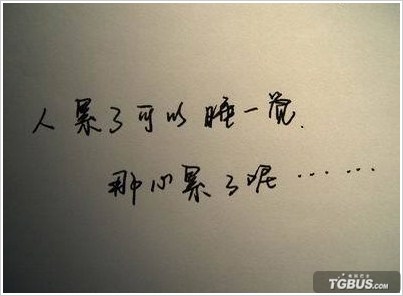 人累了可以睡一觉.
那心累了呢……
TGBUS.COM